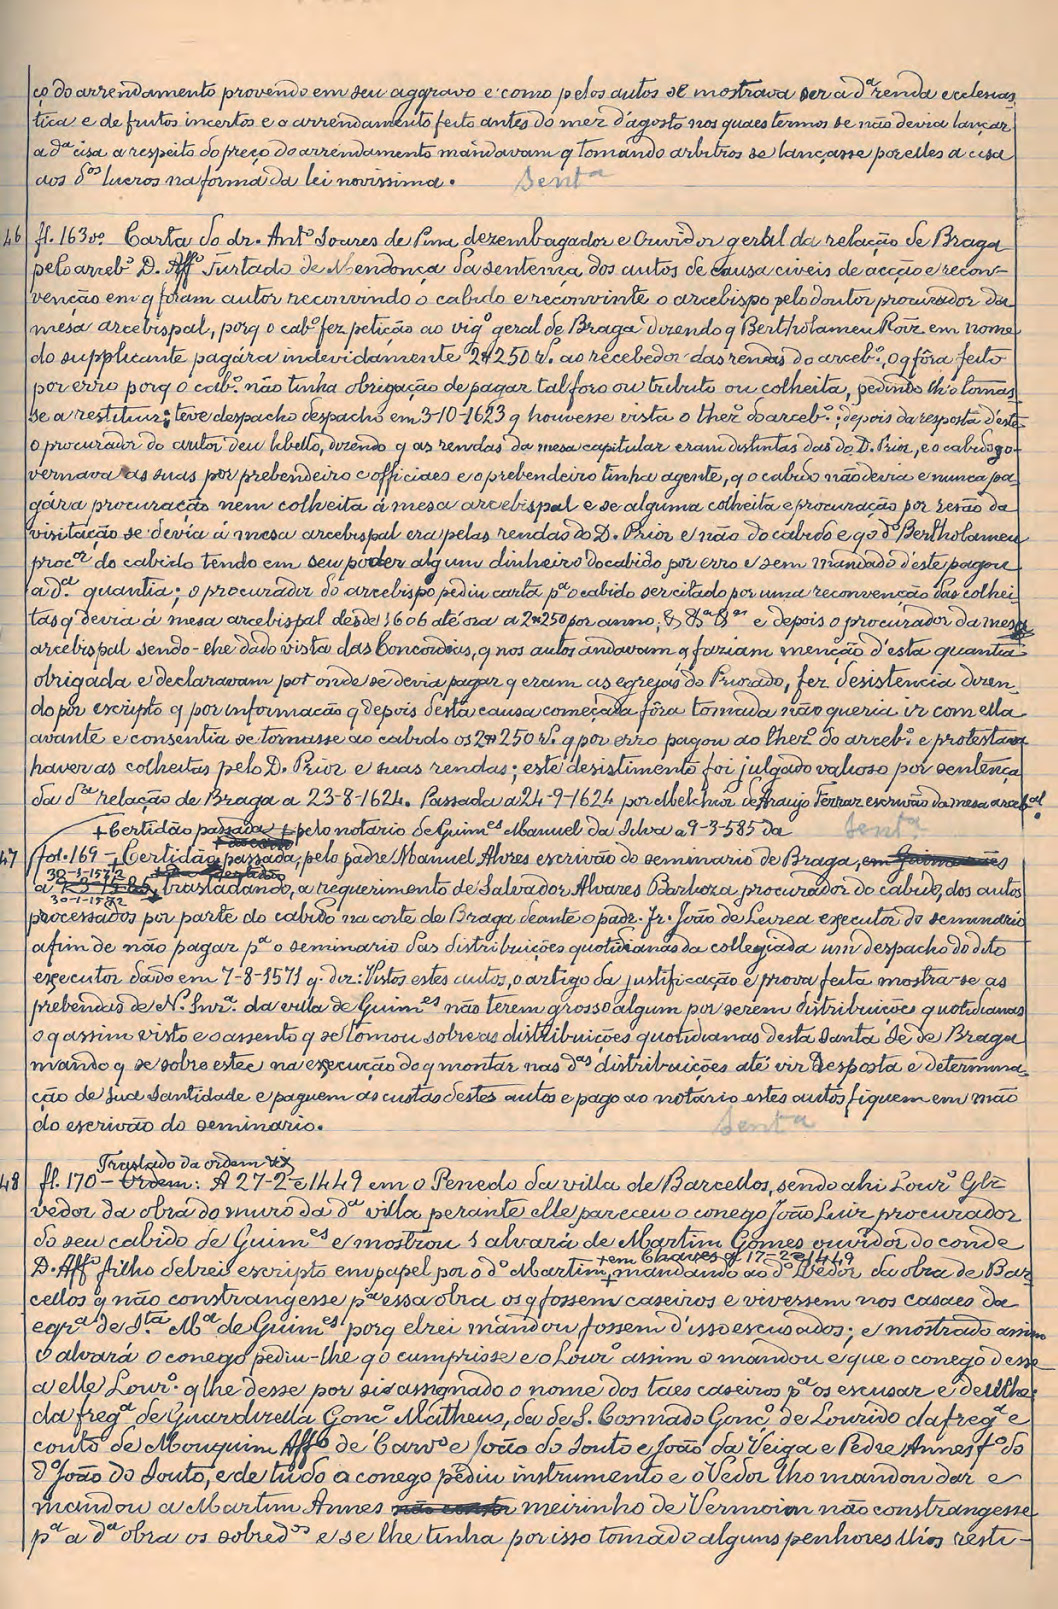 ço do arrendamento provendo em seu aggravo e como pelos autos se mostrava ser a dª renda ecclesias
tica e de frutos incertos e o arrendamento feito antes do mez d'agosto nos quaes termos se não devia lançar
a dª cisa a respeito do preço do arrendamento mandavam q tomando arbitros se lançasse por elles a cisa
aos dos lucros na forma da lei novissima. Sentª
46 fl. 163 vº. Carta do dr. Antº Soares de Pina dezembagador e Ouvidor geral da relação de Braga
pelo arcebº D. Affº Furtado de Mendonça da sentença dos autos de causa civeis de acção e recon-
venção em q foram autor reconvindo o cabido e reconvinte o arcebispo pelo doutor procurador da
mesa arcebispal, porq o cabº fez petição ao vigº geral de Braga dizendo q Bertholameu Roiz em nome
do supplicante pagára indevidamente 2#250 rs. ao recebedor das rendas do arcebº, o q fôra feito
por erro porq o cabº. não tinha obrigação de pagar tal foro ou tributo ou colheita, pedindo lh'o tornas
se a restituir; teve despacho despacho em 3-10-1623 q houvesse vista o thezº do arcebº; depois da resposta d'este
o procurador do autor deu libello, dizendo q as rendas da mesa capitular eram distintas das do D. Prior, e o cabido go-
vernava as suas por prebendeiro e officiaes e o prebendeiro tinha agente, q o cabido não devia e nunca pa
gára procuração nem colheita á mesa arcebispal e se alguma colheita e procuração por rezão da
visitação se devia á mesa arcebispal era pelas rendas do D. Prior e não do cabido e q o dº Bertholameu
procor do cabido tendo em seu poder algum dinheiro do cabido por erro e sem mandado d'este pagou
a dª quantia; o procurador do arcebispo pediu carta pª o cabido ser citado por uma reconvenção das colhei-
tas q devia á mesa arcebispal desde 1606 até ora a 2#250 por anno, & &ª &ª e depois o procurador da mesa
arcebispal sendo-lhe dado vista das Concordias, q nos autos andavam q faziam menção d'esta quantia
obrigada e declaravam por onde se devia pagar q eram as egrejas do Priorado, fez desistencia dizen-
do por escripto q por informação q depois desta causa começada fôra tomada não queria ir com ella
avante e consentia se tornasse ao cabido os 2#250 rs. q por erro pagou ao thezº do arcebº e protestava
haver as colheitas pelo D. Prior e suas rendas; este desistimento foi julgado valioso por sentença
da dª relação de Braga a 23-8-1624. Passada a 24-9-1624 por Melchior de Araujo Ferraz escrivão da mesa arcebal.
+ Certidão passada + pelo notario de Guimes Manuel da Silva a 9-3-585 da Sentª
47 fol. 169 - Certidão passada, pelo padre Manuel Alvres escrivão do seminario de Braga, em Guimarães
30-1-1572
a trasladando, a requerimento de Salvador Alvares Barboza procurador do cabido, dos autos
30-1-1572
processados por parte do cabido na corte de Braga deante o padr. fr. João de Leirea executor do seminario
afim de não pagar pª o seminario das distribuições quotidianas da collegiada um despacho do dito
executor dado em 7-8-1571 q. diz: Vistos estes autos, o artigo da justificação e prova feita mostra-se as
prebendas de N. Snrª. da villa de Guimes não terem grosso algum por serem distribuições quotidianas
o q assim visto e o assento q se tomou sobre as distribuições quotidianas desta santa Sé de Braga
mando q se sobre estee na execução do q montar nas dªs distribuições até vir resposta e determina-
ção de Sua Santidade e paguem as custas destes autos e pago ao notario estes autos fiquem em mão
do escrivão do seminario. Sentª
Traslado da ordem
48 fl. 170 - Ordem: A 27-2-e 1449 em o Penedo da villa de Barcellos, sendo ahi Lourº Glz
vedor da obra do muro da dª villa perante elle pareceu o conego João Luiz procurador
do seu cabido de Guimes e mostrou 1 alvará de Martim Gomes ouvidor do conde
+ em Chaves a 17-2-e 1449
D. Affº filho delrei escripto em papel por o dº Martim, + mandando ao dº Vedor da obra de Bar-
cellos q não constrangesse pª essa obra os q fossem caseiros e vivessem nos casaes da
egrª de Stª Mª de Guimes porq elrei mandou fossem d'isso escusados; e mostrado assim
o alvará o conego pediu-lhe q o cumprisse e o Lourº assim o mandou e que o conego desse
a elle Lourº. q lhe desse por si assignado o nome dos taes caseiros pª os escusar e deu lhe:
da fregª de Guardizella Gonçº Matheus, da de S. Cosmado Gonçº de Lourido da fregª e
couto de Mouquim Affº de Carvº e João do Souto e João da Veiga e Pedre Annes fº do
dº João do Souto, e de tudo o conego pediu instrumento e o Vedor lho mandou dar e
mandou a Martim Annes meirinho de Vermoim não constrangesse
pª a dª obra os sobredos e se lhe tinha por isso tomado alguns penhores lhos resti-